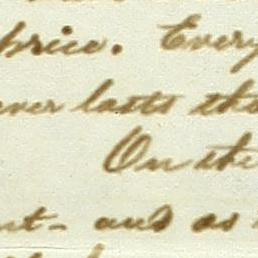 price. Every
ever lasts the
On the
nt- and as